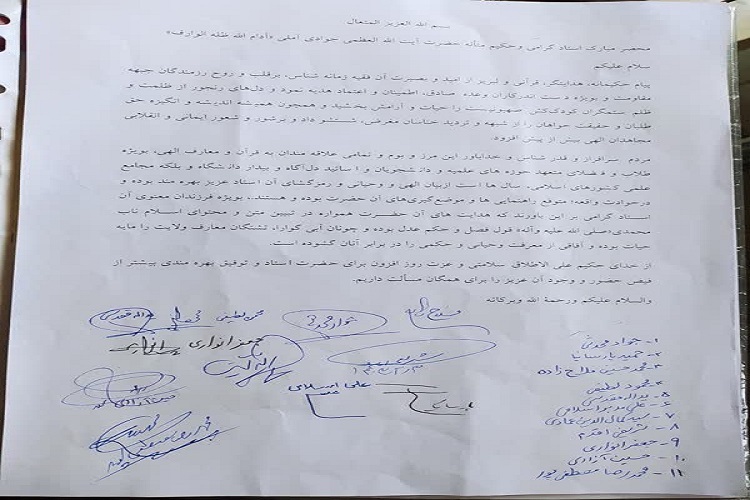 بسم الله العزیز المتعال
محضر مبارک استاد گرامی وحکیم متأله حضرت آیت الله العظمی جوادی آملی «أدام الله ظله الوارف»
سلام علیکم
پیام حکیمانه، هدایتگر، قرآنی و لبریز از امید و بصیرت آن فقیه زمانه شناس، برقلب و روح رزمندگان جبهه
مقاومت و بویژه دست اندرکاران وعده صادق، اطمینان و اعتماد هدیه نمود و دل‌های رنجور از ظلمت و
ظلم ستمگران کودک‌کش صهیونیست را حیات و آرامش بخشید و همچون همیشه اندیشه و انگیزه حق
طلبان و حقیقت خواهان را از شبهه و تردید خناسان مغرض، شستشو داد و برشور و شعور ایمانی و انقلابی
مجاهدان الهی بیش از پیش افزود.
مردم سرافراز و قدر شناس و خداباور این مرز و بوم و تمامی علاقه مندان به قرآن و معارف الهی، بویژه
طلاب و فضلای متعهد حوزه های علمیه و دانشجویان و اساتید دل‌آگاه و بیدار دانشگاه و بلکه مجامع
علمی کشورهای اسلامی، سال ها است ازبیان الهی و وحیانی و رمزگشای آن استاد عزیز بهره مند بوده و
درحوادث واقعه؛ متوقع راهنمایی ها و موضع‌گیری‌های آن حضرت بوده و هستند.، بویژه فرزندان معنوی آن
استاد گرامی بر این باورند که هدایت های آن حضرت همواره در تبیین متن و محتوای اسلام ناب
محمدی(صلی الله علیه وآله) قول فصل و حکم عدل بوده و چونان آبی گوارا، تشنگان معارف ولایت را مایه
حیات بوده و آفاقی از معرفت وحیانی و حکمی را در برابر آنان گشوده است.
از خدای حکیم علی الاطلاق سلامتی و عزت روز افزون برای حضرت استاد و توفیق بهره مندی بیشتر از
فیض حضور و وجود آن عزیز را برای همگان مسألت داریم.
والسلام علیکم ورحمة الله وبرکاته
محمود لطیفی
جواد محدثی
جعفر انواری
علی اسلامی
۱- جواد محدثی
۲- حمید پارسانیا
۳- محمدحسین فلاح زاده
۴- محمود لطیفی
۵- یدالله مقدسی
۶- علی مدبر اسلامی
۷- سید کمال الدین عمادی
۸- شریفی
۹- جعفر انواری
۱۰- حسین آزادی
۱۱- محمدرضا مصطفی پور